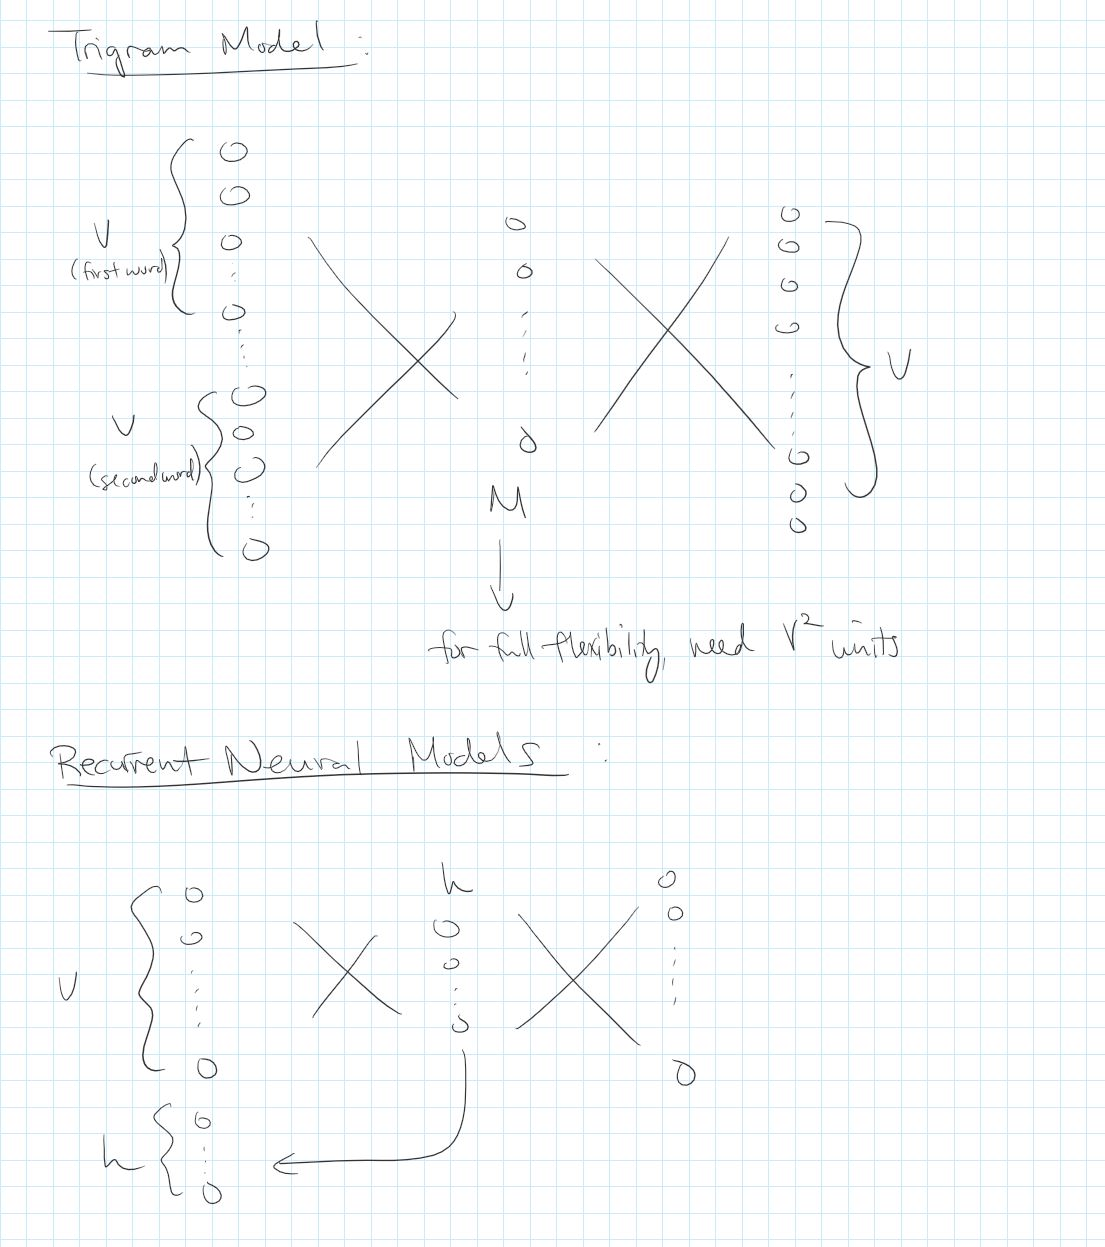 Trigram Model :
V
(first word)
V
(second word)
V
M
for full flexibility, need V² units
Recurrent Neural Models :
h
V
h